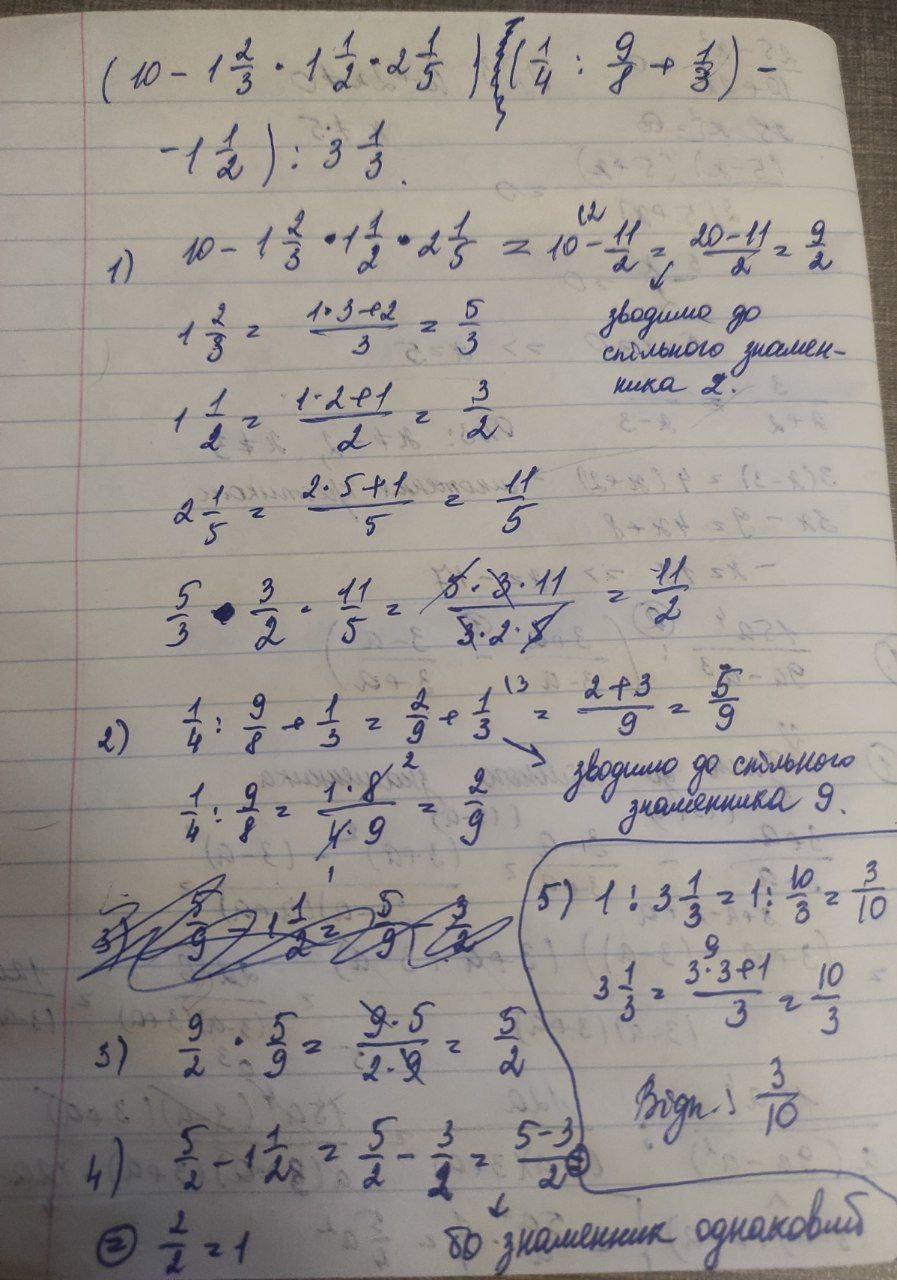 (10 - 1 2/3 · 1 1/2 · 2 1/5) (1/4 : 9/8 + 1/3) -
- 1 1/2) : 3 1/3.
1) 10 - 1 2/3 · 1 1/2 · 2 1/5 = 10 (2 - 11/2 = (20-11)/2 = 9/2
зводимо до
спільного знамен-
ника 2.
1 2/3 = (1·3+2)/3 = 5/3
1 1/2 = (1·2+1)/2 = 3/2
2 1/5 = (2·5+1)/5 = 11/5
5/3 · 3/2 · 11/5 = (5·3·11)/(3·2·5) = 11/2
2) 1/4 : 9/8 + 1/3 = 2/9 + 1/3 (3 = (2+3)/9 = 5/9
зводимо до спільного
знаменника 9.
1/4 : 9/8 = (1·8 2)/(4·9) = 2/9
1
3) 5/9 - 1 1/2 = 5/9 - 3/2
3) 9/2 · 5/9 = (9·5)/(2·9) = 5/2
4) 5/2 - 1 1/2 = 5/2 - 3/2 = (5-3)/2 =
= 2/2 = 1
бо знаменник однаковий
5) 1 : 3 1/3 = 1 : 10/3 = 3/10
3 1/3 = (3·3+1)/3 = 10/3
9
Відп.: 3/10